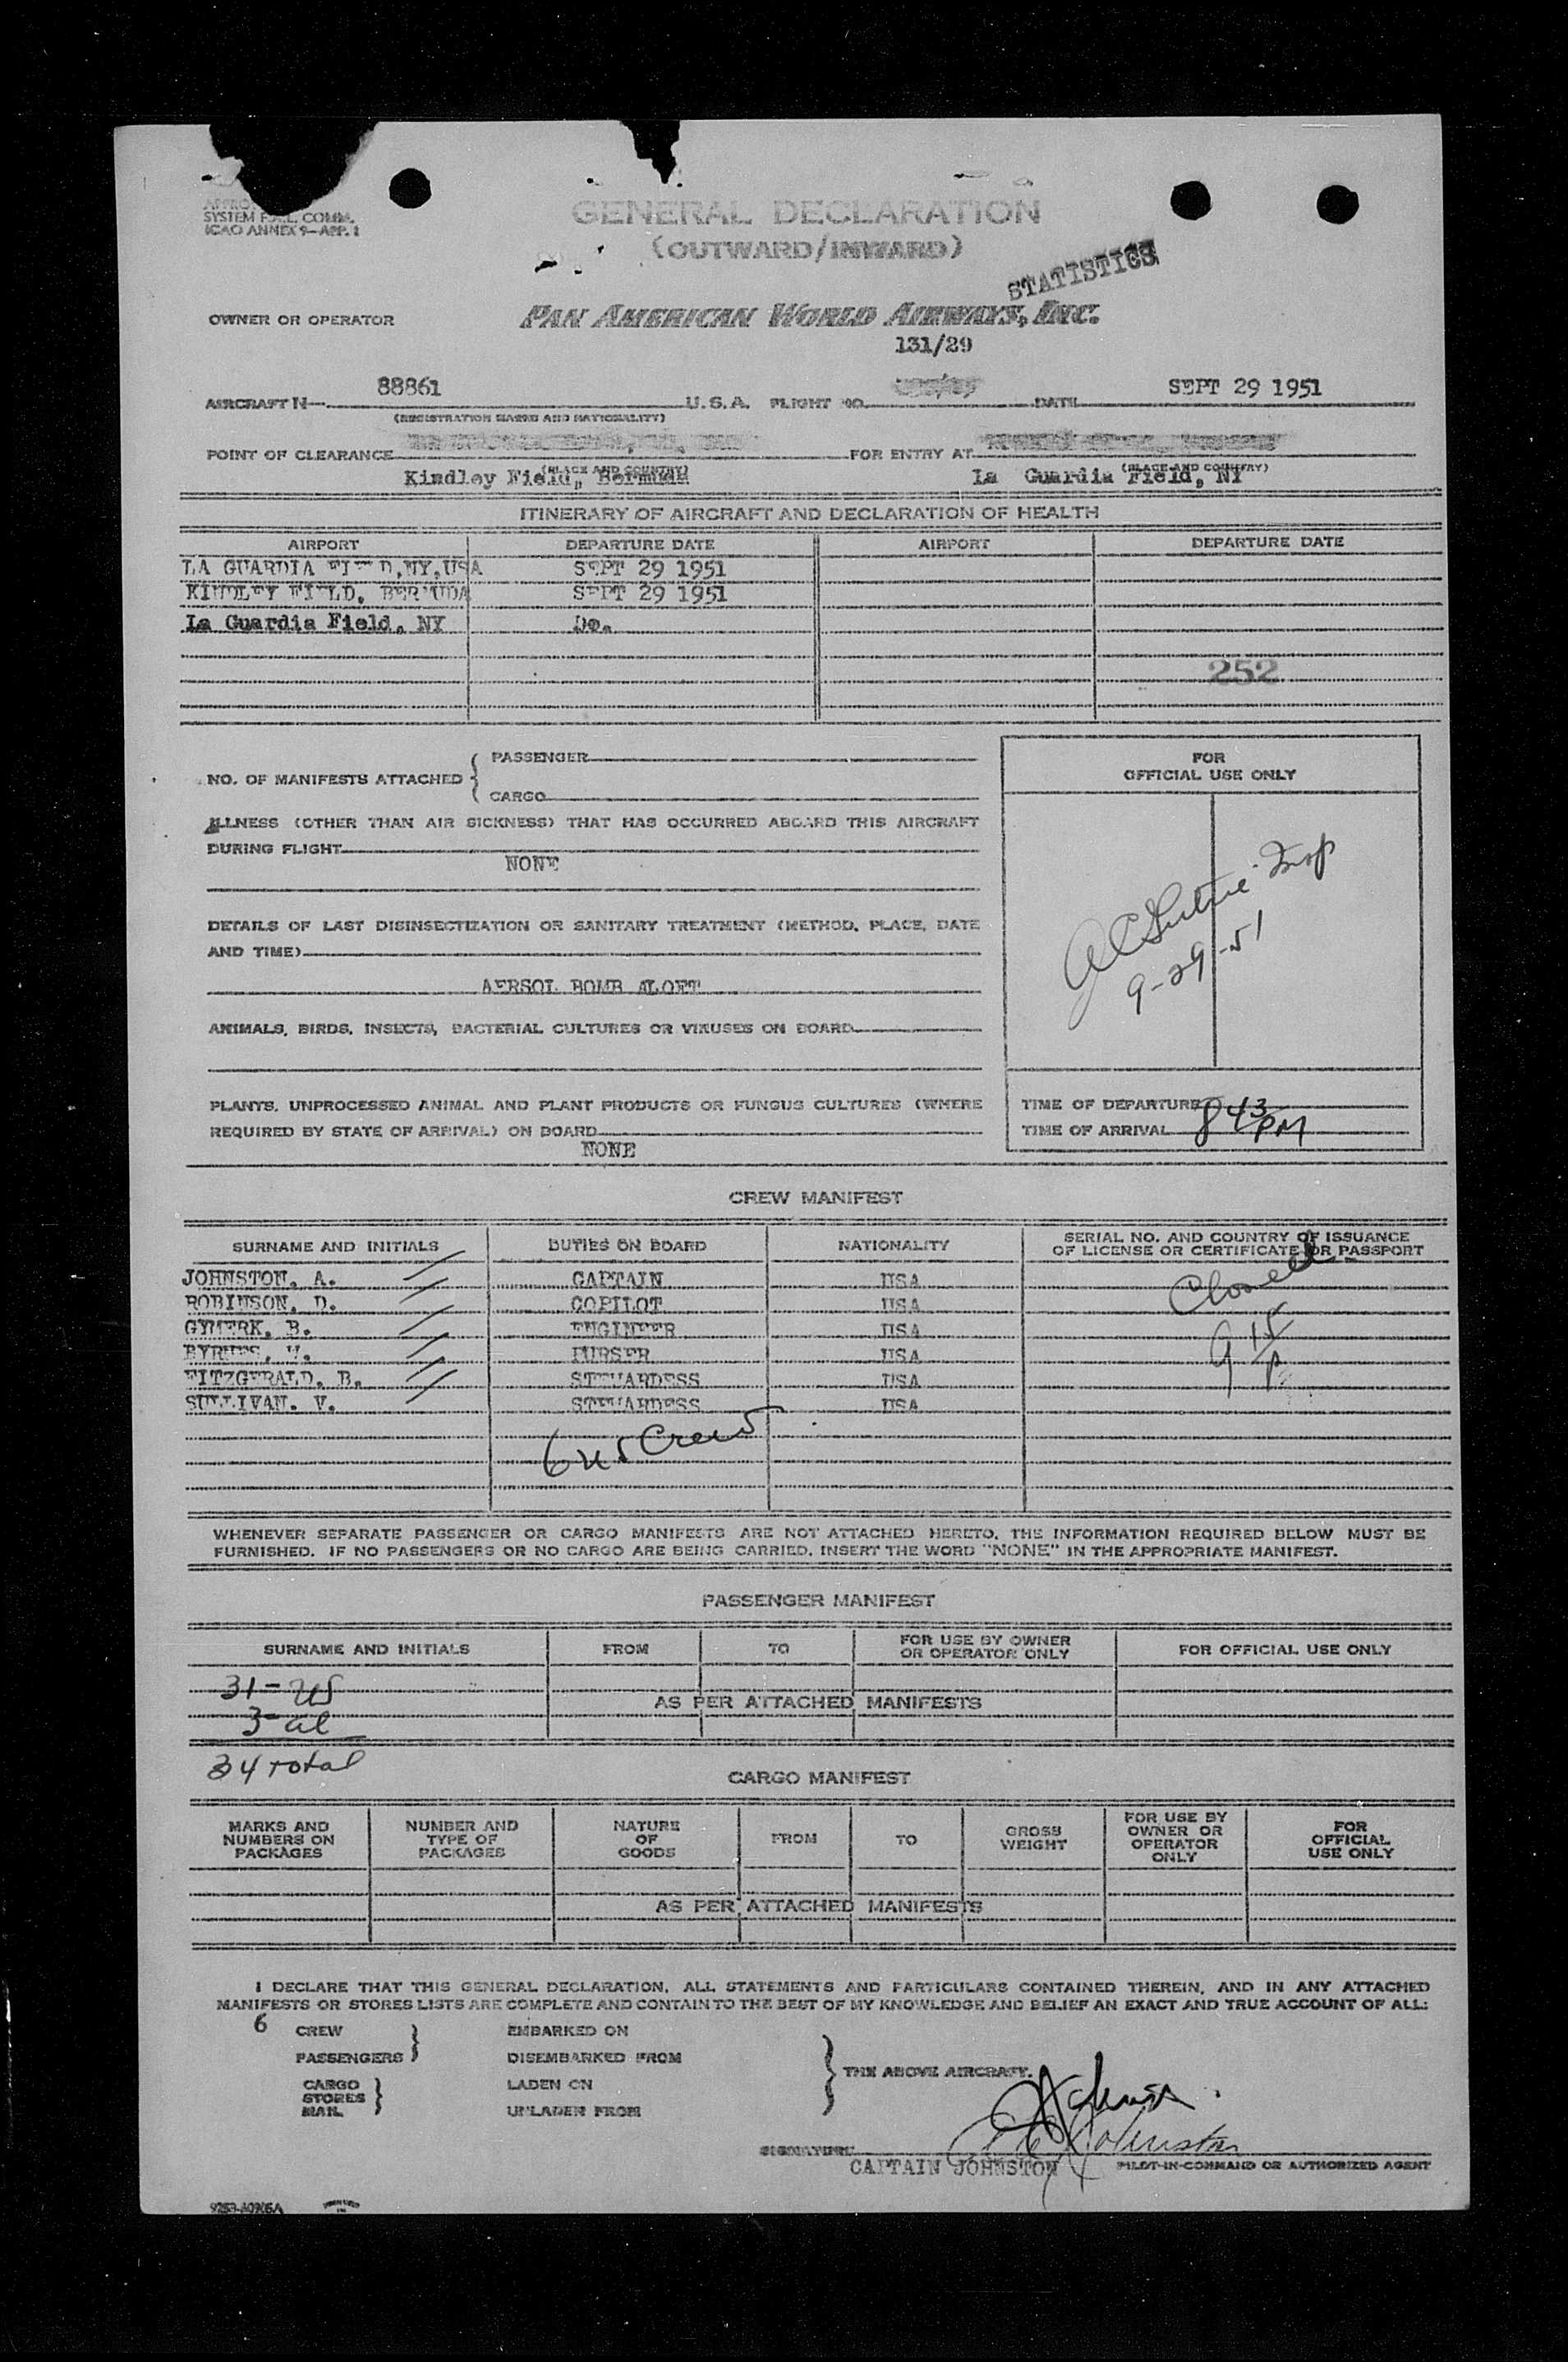 SYSTEM F.A.L. COMM.
ICAO ANNEX 9—APP. 1
GENERAL DECLARATION
(OUTWARD/INWARD)
STATISTICS
OWNER OR OPERATOR
PAN AMERICAN WORLD AIRWAYS, INC.
131/29
AIRCRAFT N— 88861 U.S.A. FLIGHT NO. DATE SEPT 29 1951
(REGISTRATION MARKS AND NATIONALITY)
POINT OF CLEARANCE FOR ENTRY AT
(PLACE AND COUNTRY) (PLACE AND COUNTRY)
Kindley Field, Bermuda La Guardia Field, NY
ITINERARY OF AIRCRAFT AND DECLARATION OF HEALTH
AIRPORT DEPARTURE DATE AIRPORT DEPARTURE DATE
LA GUARDIA FIELD,NY,USA SEPT 29 1951
KINDLEY FIELD, BERMUDA SEPT 29 1951
La Guardia Field, NY Do.
252
NO. OF MANIFESTS ATTACHED { PASSENGER
CARGO
FOR
OFFICIAL USE ONLY
ILLNESS (OTHER THAN AIR SICKNESS) THAT HAS OCCURRED ABOARD THIS AIRCRAFT
DURING FLIGHT
NONE
Insp
9-29-51
DETAILS OF LAST DISINSECTIZATION OR SANITARY TREATMENT (METHOD, PLACE, DATE
AND TIME)
AERSOL BOMB ALOFT
ANIMALS, BIRDS, INSECTS, BACTERIAL CULTURES OR VIRUSES ON BOARD
PLANTS, UNPROCESSED ANIMAL AND PLANT PRODUCTS OR FUNGUS CULTURES (WHERE
REQUIRED BY STATE OF ARRIVAL) ON BOARD
NONE
TIME OF DEPARTURE
TIME OF ARRIVAL 8 43 PM
CREW MANIFEST
SURNAME AND INITIALS DUTIES ON BOARD NATIONALITY SERIAL NO. AND COUNTRY OF ISSUANCE
OF LICENSE OR CERTIFICATE OR PASSPORT
JOHNSTON, A. CAPTAIN USA
ROBINSON, D. COPILOT USA
GYMERK, B. ENGINEER USA
BYRNES, PURSER USA
FITZGERALD, B. STEWARDESS USA
SULLIVAN, V. STEWARDESS USA
Closed
9 15/P
6 us Crew
WHENEVER SEPARATE PASSENGER OR CARGO MANIFESTS ARE NOT ATTACHED HERETO, THE INFORMATION REQUIRED BELOW MUST BE
FURNISHED. IF NO PASSENGERS OR NO CARGO ARE BEING CARRIED, INSERT THE WORD "NONE" IN THE APPROPRIATE MANIFEST.
PASSENGER MANIFEST
SURNAME AND INITIALS FROM TO FOR USE BY OWNER
OR OPERATOR ONLY FOR OFFICIAL USE ONLY
31-US
AS PER ATTACHED MANIFESTS
3-al
34 total
CARGO MANIFEST
MARKS AND
NUMBERS ON
PACKAGES
NUMBER AND
TYPE OF
PACKAGES
NATURE
OF
GOODS
FROM
TO
GROSS
WEIGHT
FOR USE BY
OWNER OR
OPERATOR
ONLY
FOR
OFFICIAL
USE ONLY
AS PER ATTACHED MANIFESTS
I DECLARE THAT THIS GENERAL DECLARATION, ALL STATEMENTS AND PARTICULARS CONTAINED THEREIN, AND IN ANY ATTACHED
MANIFESTS OR STORES LISTS ARE COMPLETE AND CONTAIN TO THE BEST OF MY KNOWLEDGE AND BELIEF AN EXACT AND TRUE ACCOUNT OF ALL:
6 CREW EMBARKED ON
PASSENGERS DISEMBARKED FROM
THE ABOVE AIRCRAFT.
CARGO LADEN ON
STORES
MAIL UNLADEN FROM
SIGNATURE Johnston
CAPTAIN JOHNSTON PILOT-IN-COMMAND OR AUTHORIZED AGENT